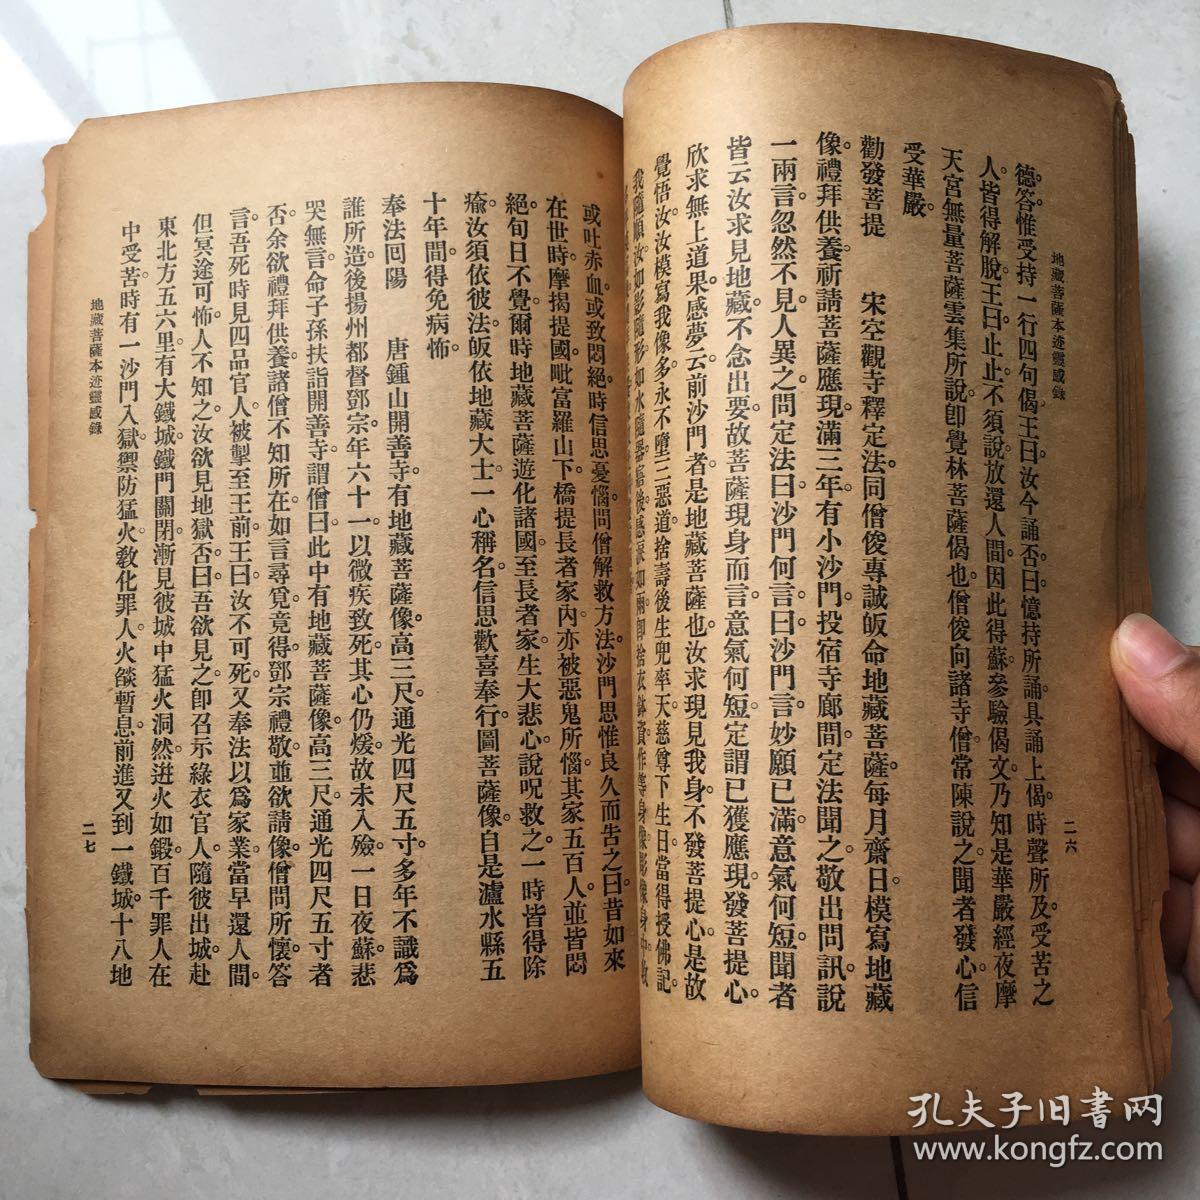 地藏菩薩本迹靈感錄
二六
德。答惟受持一行四句偈。王曰。汝今誦否。曰。憶持所誦。具誦上偈。時聲所及。受苦之
人。皆得解脫。王曰。止止。不須說。放還人間。因此得蘇。參驗偈文。乃知是華嚴經夜摩
天宮無量菩薩雲集所說。即覺林菩薩偈也。僧俊向諸寺僧常陳說之。聞者發心信
受華嚴。
勸發菩提　宋空觀寺釋定法。同僧俊專誠皈命地藏菩薩。每月齋日。模寫地藏
像。禮拜供養。祈請菩薩應現。滿三年。有小沙門。投宿寺廊間。定法聞之。敬出問訊。說
一兩言。忽然不見。人異之。問定法曰。沙門何言。曰。沙門言。妙願已滿。意氣何短。聞者
皆云。汝求見地藏。不念出要。故菩薩現身而言。意氣何短。定謂已獲應現。發菩提心。
欣求無上道果。感夢云。前沙門者。是地藏菩薩也。汝求現見我身。不發菩提心。是故
覺悟汝。汝模寫我像多。永不墮三惡道。捨壽後。生兜率天。慈尊下生日。當得授佛記。
我隨順汝。如影隨形。如水隨器。寤後感淚如雨。即捨衣鉢資。作等身像。影像身中。收
或吐赤血。或致悶絕。時信思憂惱。問僧解救方法。沙門思惟良久而告之曰。昔如來
在世時。摩揭提國毗富羅山下。橋提長者家內。亦被惡鬼所惱。其家五百人。並皆悶
絕。旬日不覺。爾時地藏菩薩遊化諸國。至長者家。生大悲心。說呪救之。一時皆得除
瘉。汝須依彼法。皈依地藏大士。一心稱名。信思歡喜奉行。圖菩薩像。自是瀘水縣五
十年間。得免病怖。
奉法回陽　唐鍾山開善寺。有地藏菩薩像。高三尺。通光四尺五寸。多年不識爲
誰所造。後揚州都督鄧宗。年六十一。以微疾致死。其心仍煖。故未入殮。一日夜蘇。悲
哭無言。命子孫扶詣開善寺。謂僧曰。此中有地藏菩薩像。高三尺。通光四尺五寸者
否。余欲禮拜供養。諸僧不知所在。如言尋覓。竟得。鄧宗禮敬。並欲請像。僧問所懷。答
言。吾死時。見四品官人。被掣至王前。王曰。汝不可死。又奉法以爲家業。當早還人間。
但冥途可怖。人不知之。汝欲見地獄否。曰。吾欲見之。即召示綠衣官人。隨彼出城。赴
東北方五六里。有大鐵城。鐵門關閉。漸見彼城中。猛火洞然。迸火如鍛。百千罪人在
中受苦。時有一沙門入獄。禦防猛火。敎化罪人。火燄暫息。前進又到一鐵城。十八地
地藏菩薩本迹靈感錄
二七
孔夫子旧書网
www.kongfz.com